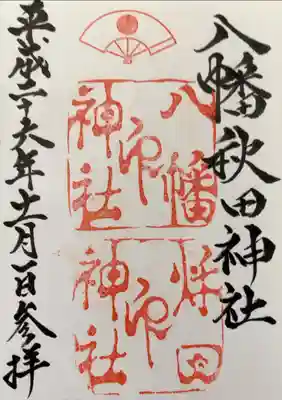 八幡秋田神社
八幡
印
神社
秌田
印
神社
平成二十六年十一月一日参拝